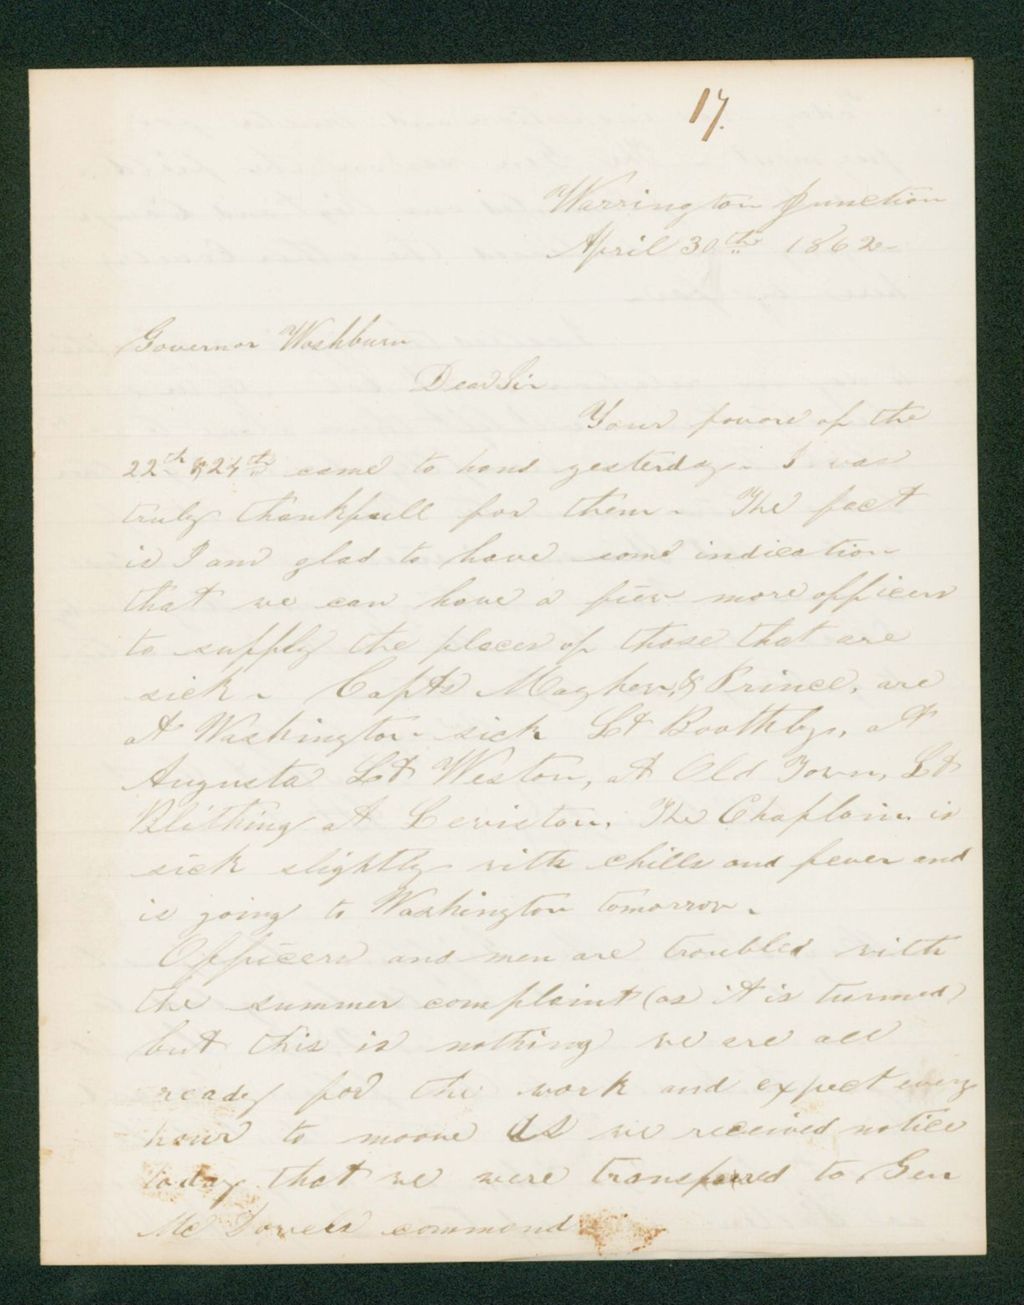 17.
Warrington Junction
April 30th 1862
Governor Washburn
Dear Sir
Your favors of the
22th & 24th came to hand yesterday. I was
truly thankfull for them. The fact
is I am glad to have some indication
that we can have a few more officers
to supply the places of those that are
sick. Capts & Prince, are
at Washington sick Lt Boothby, at
Augusta Lt Weston, at Old Town, Lt
at Leviston. The Chaplain is
sick slightly with chills and fever and
is going to Washington tomorrow.
Officers and men are troubled with
the summer complaint (as it is turmed)
but this is nothing we are all
ready for the work and expect every
hour to moove as we received notice
today that we were transfered to Gen
Mc Dowels command